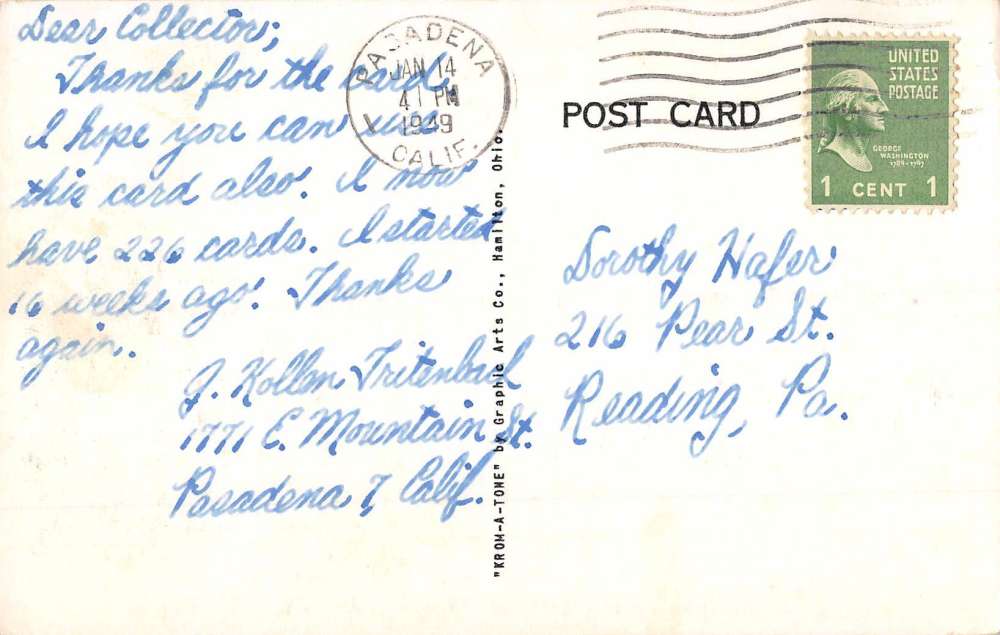 Dear Collector;
Thanks for the card,
I hope you can use
this card also. I now
have 226 cards. I started
16 weeks ago. Thanks
again.
J. Kollen Tritenbach
1771 E. Mountain St.
Pasadena 7, Calif.
PASADENA
JAN 14
4 PM
1949
CALIF.
"KROM-A-TONE" by Graphic Arts Co., Hamilton, Ohio.
POST CARD
UNITED
STATES
POSTAGE
GEORGE
WASHINGTON
1789-1797
1 CENT 1
Dorothy Hafer
216 Pear St.
Reading, Pa.